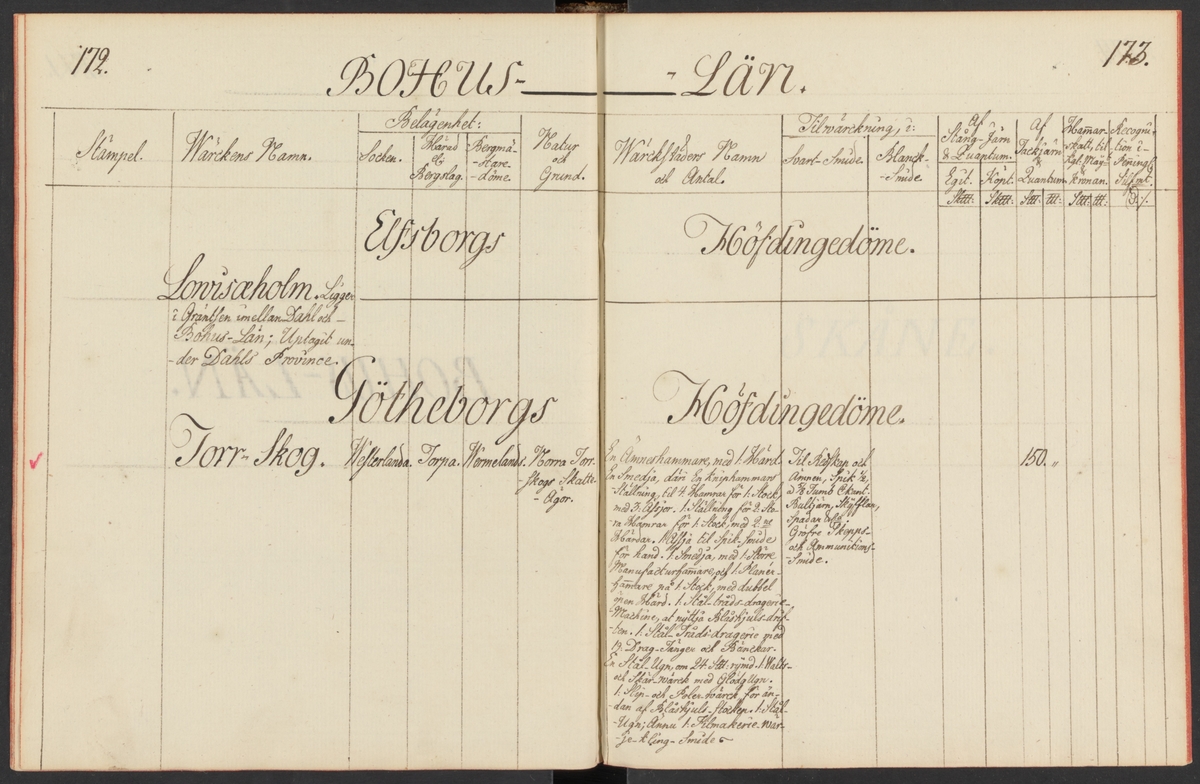 172.
173.
BOHUS- - Län.
Stämpel.
Wärckens Namn.
Belägenhet:
Socken.
Härad
Bergslag.
Bergmä-
-stare-
-döme.
Natur
och
Grund.
Wärckstädens Namn
och Antal.
Tilwärckning, i:
Svart-Smide.
Blanck-
-Smide.
Af
Stång-Järn
& Quantum.
Egit. Köpt.
Af
Tackjärn
&
Quantum.
Hamar-
skatt, til
Kgl. Maj:
kronan.
Recogni-
tion i-
Pening
Silf:mt.
Elfsborgs Höfdingedöme.
Lovisæholm. Ligger
i Gräntsen imellan Dahl och
Bohus-Län; Uptagit un-
-der Dahls Province.
Götheborgs Höfdingedöme.
Torr-Skog.
Westerlanda.
Torpa.
Wermelands.
Norra Torr-
-skogs Skatte-
-Ägor.
En Ämneshammare, med 1. Härd
En Smedja, däri En Kniphammars
Ställning, til 4. Hamrar för 1. Stock,
med 3. Äsjor. 1. Ställning för 2. Sto-
ra Hamrar för 1. Stock, med 2:ne
Härdar. 1. Ässja til Spik-Smide
för hand. 1. Smedja, med 1. Större
Manufacturhamare, och 1. Planer-
hamare på 1. Stock, med dubbel
men Härd. 1. Stål-tråds-dragerie-
Machine, at nyttja Blåshjuls-drif-
-ten. 1. Stål-Tråds-dragerie med
Drag-Tänger och Bänckar.
En Stål-Ugn, om 24. rymd. 1. Walts-
och Skär-wärck med GlödgUgn.
1. Slip- och Poler-wärck för än-
dan af Blåshjuls-stocken. 1. Stål-
-Ugn; Ännu 1. Filmakerie-wär-
Smide
Til Redskap och
Ämnen, Spik 1/2,
Tumb
Bultjärn, Skyfflar,
Spadar
Gröfre Skepps-
och Ammunitions-
-Smide.
150. „